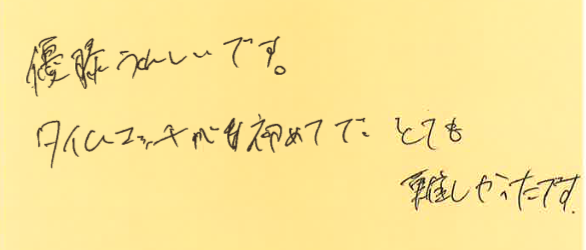 優勝うれしいです。
タイムマッチが初めてで とても
難しかったです。